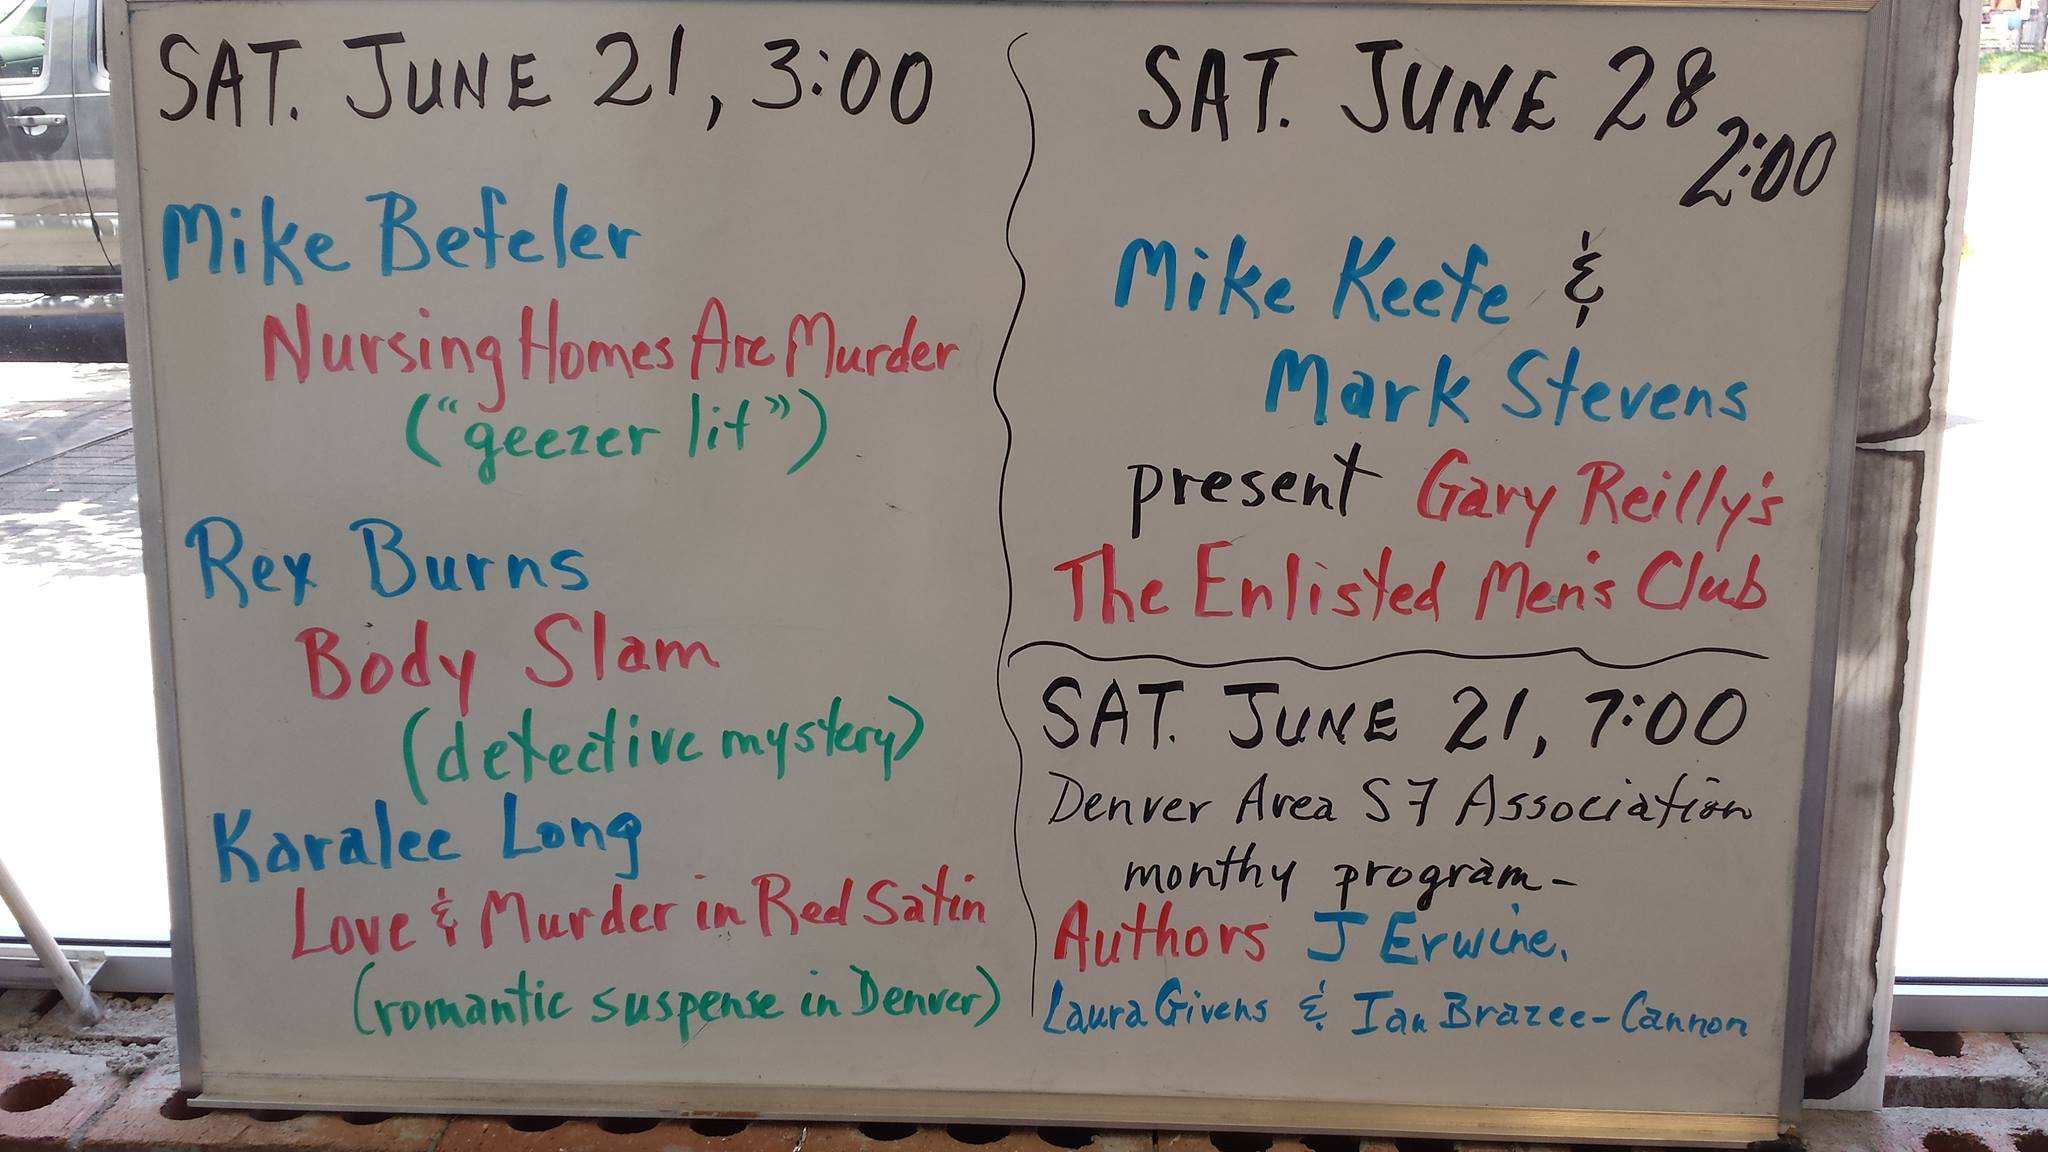 SAT. JUNE 21, 3:00
Mike Befeler
Nursing Homes Are Murder
("geezer lit")
Rex Burns
Body Slam
(detective mystery)
Karalee Long
Love & Murder in Red Satin
(romantic suspense in Denver)
SAT. JUNE 28
2:00
Mike Keefe &
Mark Stevens
present Gary Reilly's
The Enlisted Men's Club
SAT. JUNE 21, 7:00
Denver Area SF Association
monthy program-
Authors J Erwine,
Laura Givens & Ian Brazee-Cannon